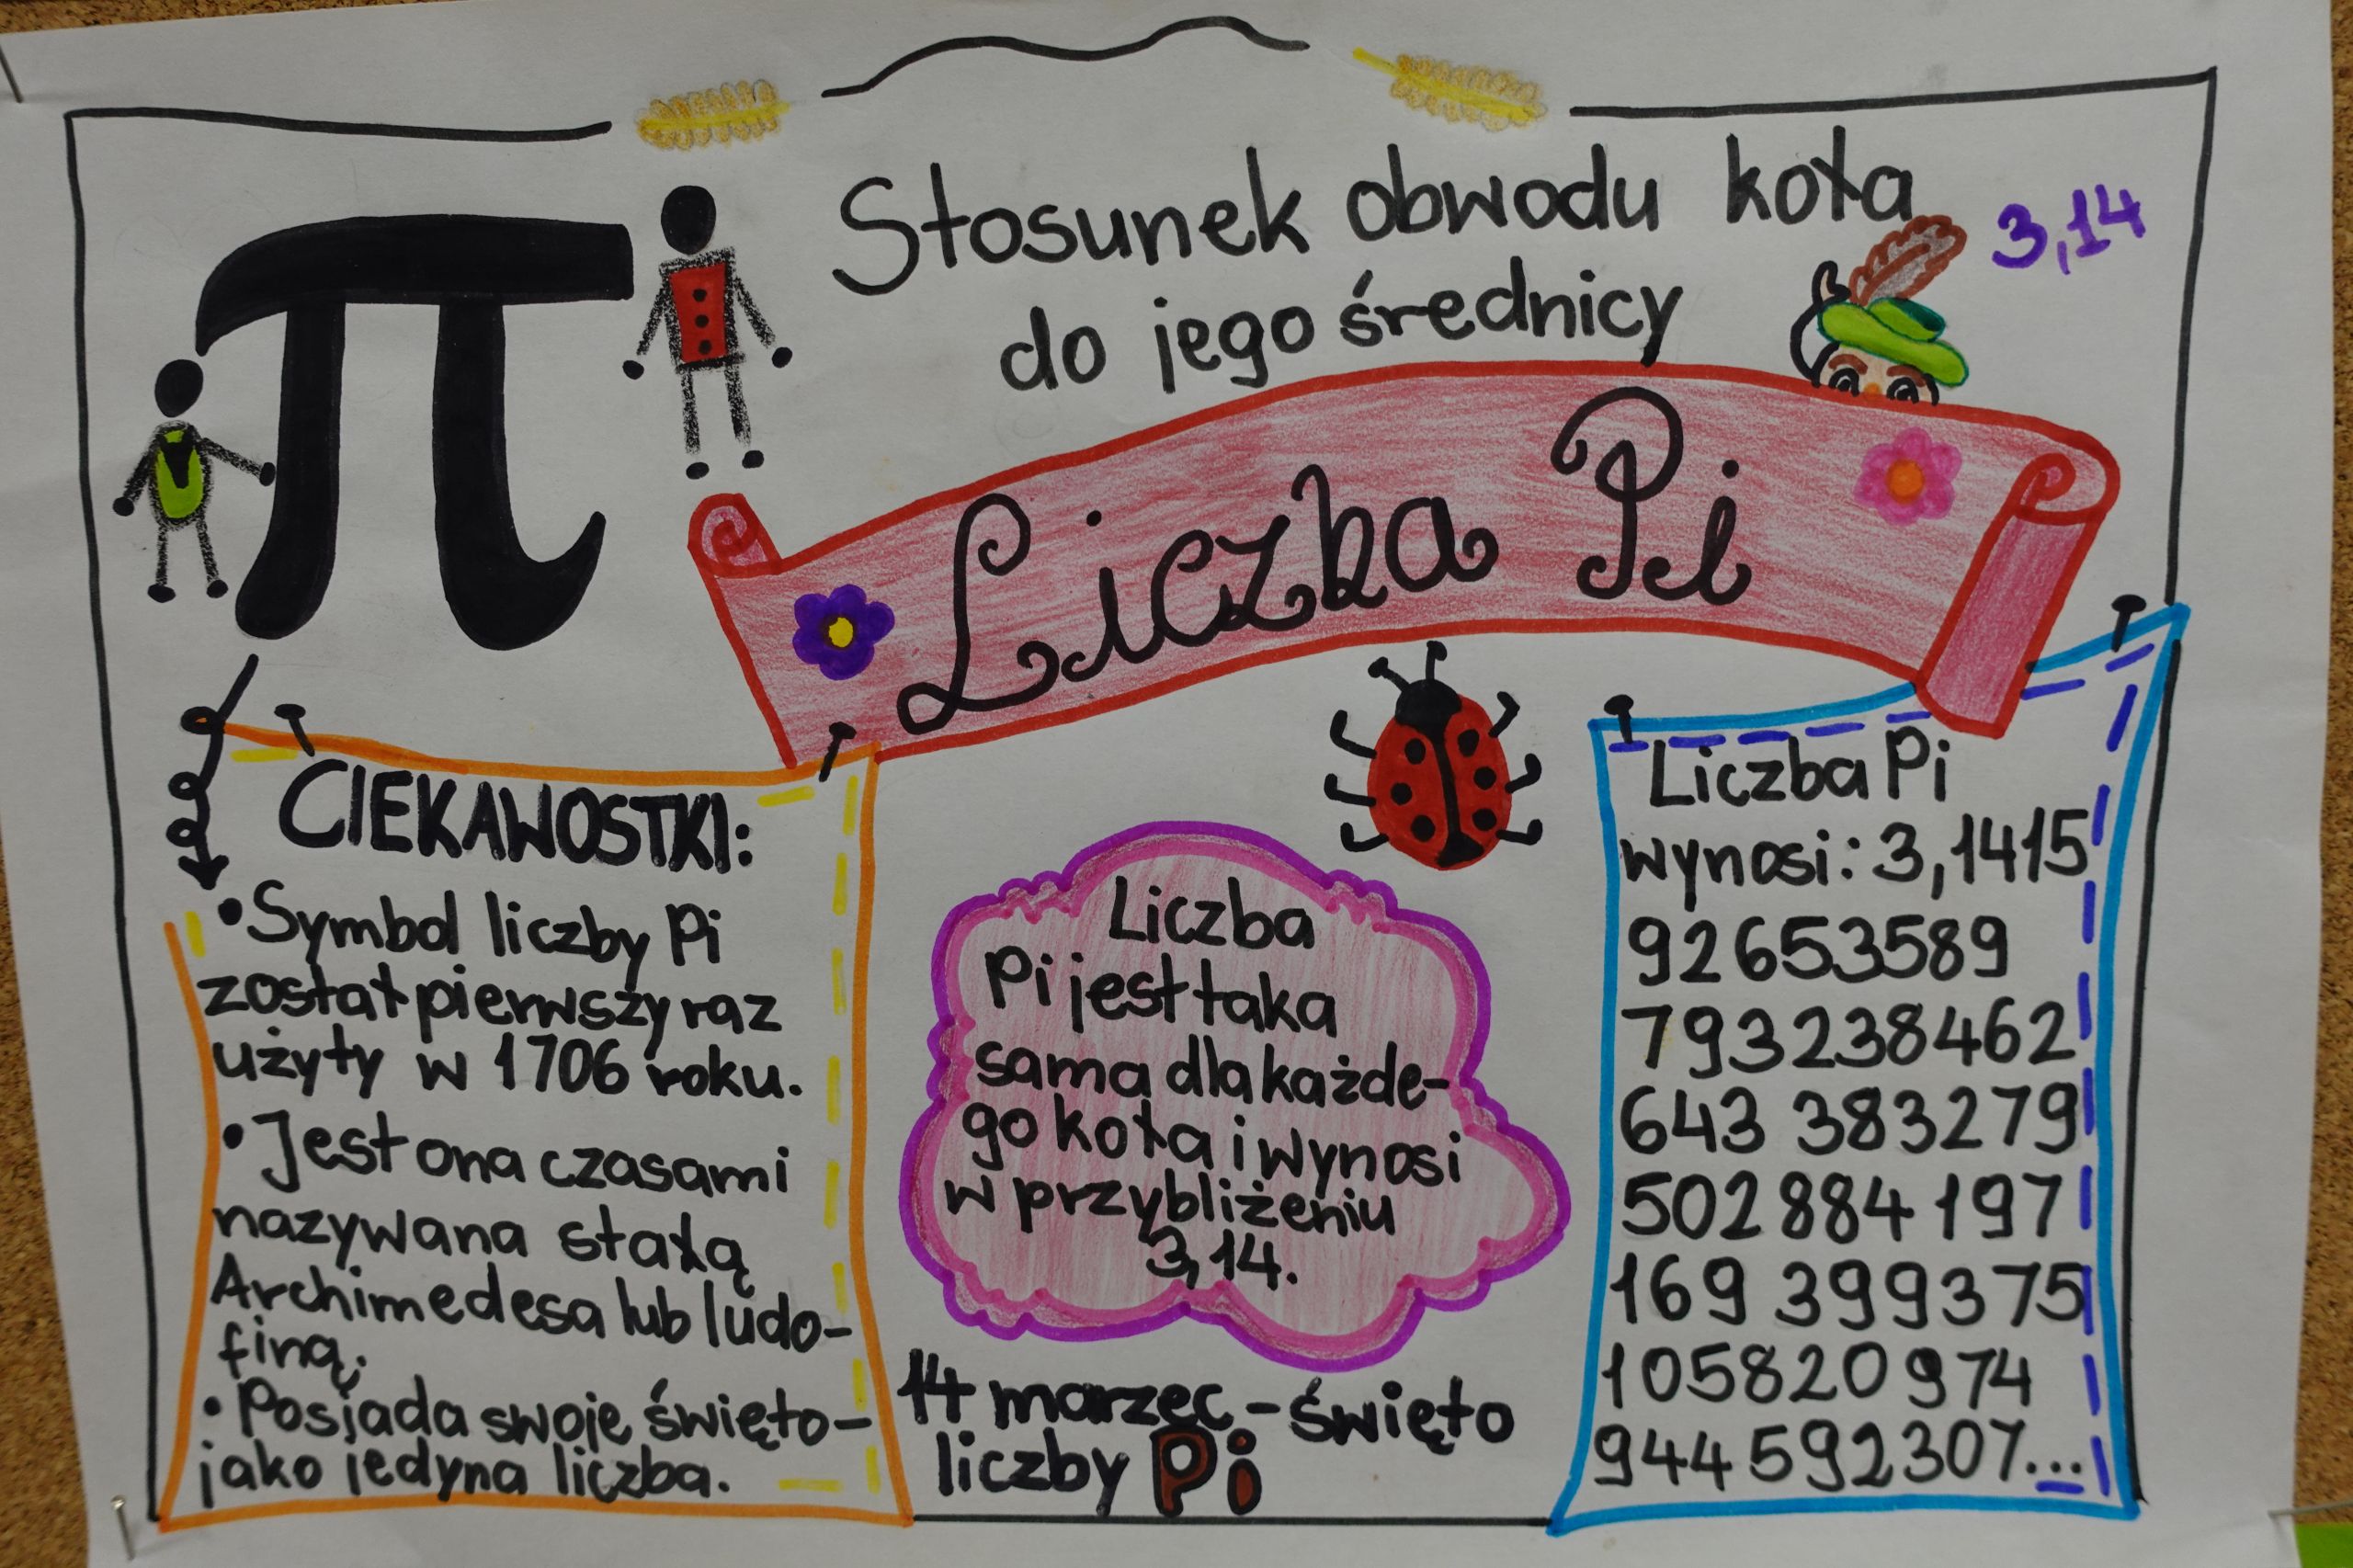 Stosunek obwodu koła
3,14
do jego średnicy
Liczba Pi
CIEKAWOSTKI:
•Symbol liczby Pi
został pierwszy raz
użyty w 1706 roku.
•Jest ona czasami
nazywana stałą
Archimedesa lub ludo-
finą.
•Posiada swoje święto-
jako jedyna liczba.
Liczba
Pi jest taka
sama dla każde-
go koła i wynosi
w przybliżeniu
3,14.
14 marzec - święto
liczby Pi
Liczba Pi
wynosi: 3,1415
92653589
793238462
643 383279
502884 197
169 399375
105820974
944592307...